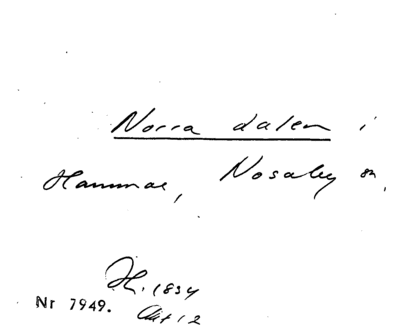 Norra dalen i
Hammar, Nosaby sn,
H. 1834
Nr 7949. Akt 12